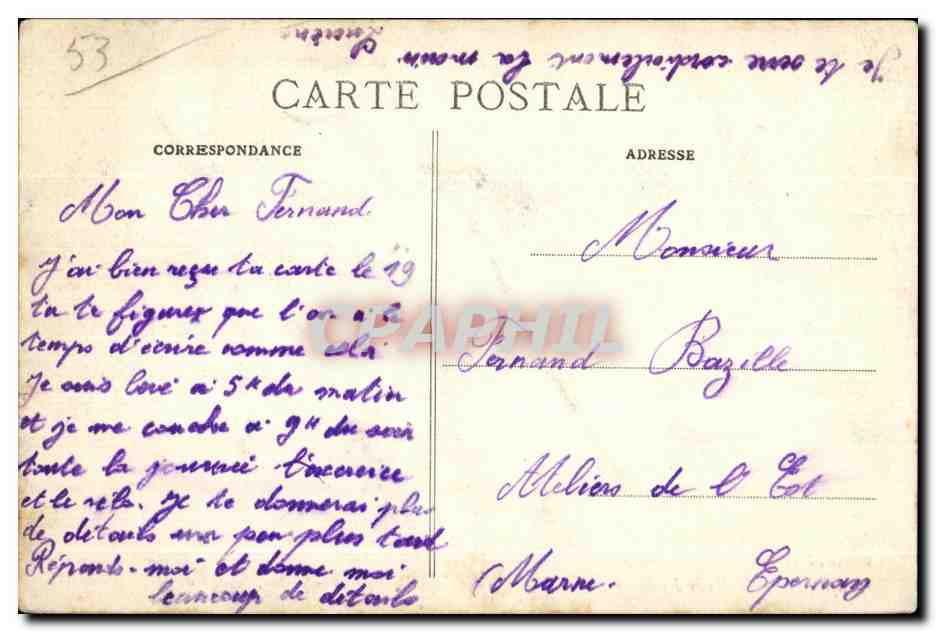 53
Je te serre cordialement la main
CARTE POSTALE
CORRESPONDANCE
Mon Cher Fernand
J'ai bien reçue ta carte le 19
tu te figurez que l'on a le
temps d'écrire comme cela
Je suis levé a 5h du matin
et je me couche a 9h du soir
toute la journée l'exercice
et le reste. Je te donnerai plus
de détails un peu plus tard
Réponds-moi et donne moi
beaucoup de détails
ADRESSE
Monsieur
Fernand Bazille
Ateliers de l'Est
(Marne. Epernay
CPAPHIL